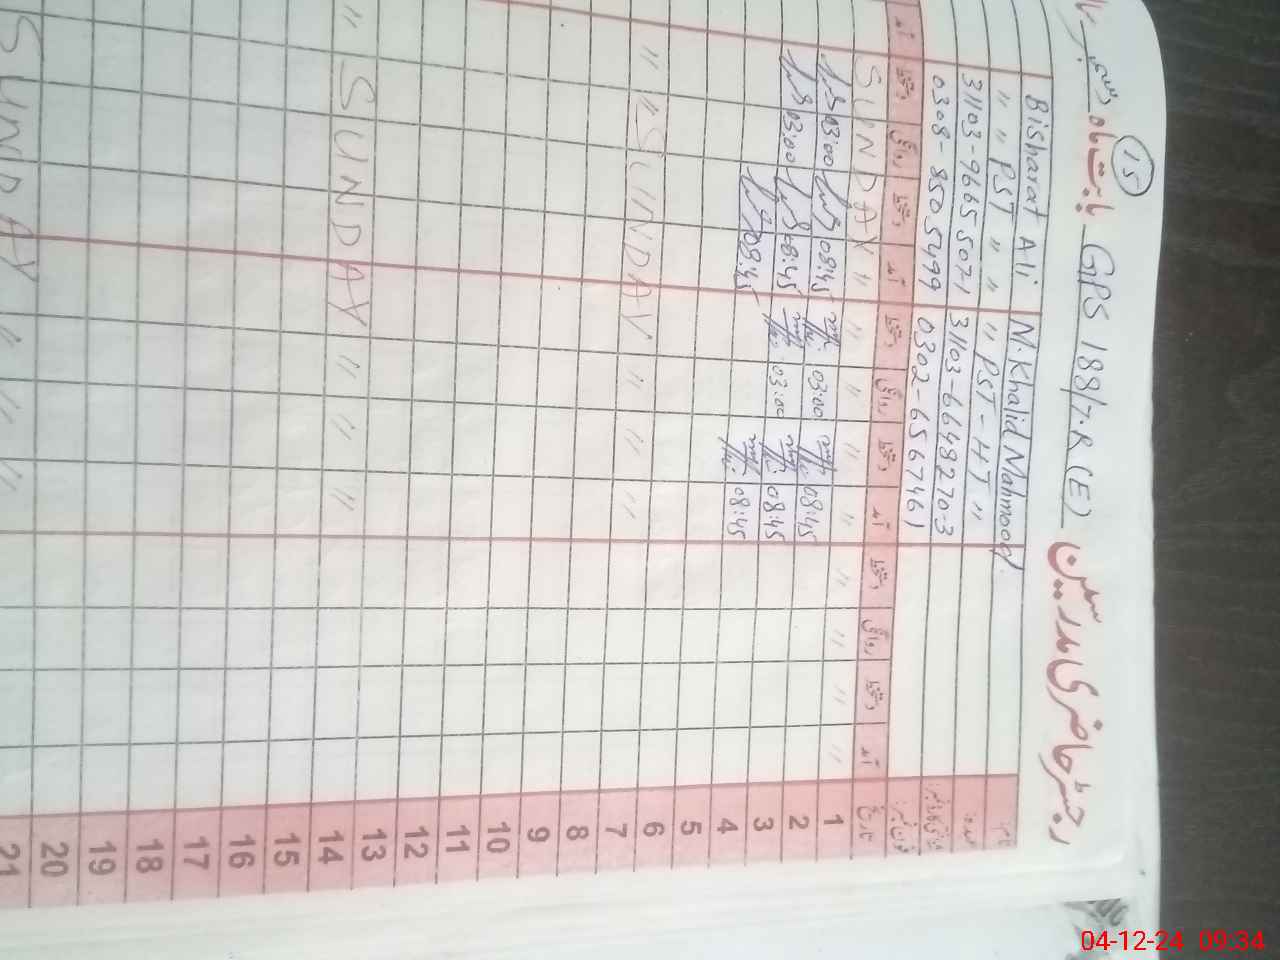 15
رجسٹر حاضری مدرسین GPS 188/7.R (E) بابت ماہ دسمبر
نام: M. Khalid Mahmood. Bisharat Ali
عہدہ: " PST-HT " " " PST " "
31103-6648270-3 31103-9665507-1
فون نمبر: 0302-6567461 0308-8505499
تاریخ آمد دستخط روانگی دستخط آمد دستخط روانگی دستخط آمد دستخط روانگی دستخط آمد
1 " " " " " " " " " SUNDAY
2 08:45 03:00 08:45 03:00
3 08:45 03:00 08:45 03:00
4 08:45 08:45
5
6
7 " " " SUNDAY " "
8
9
10
11
12
13
14 " " " SUNDAY "
15
16
17
18
19
20
21 " " " SUNDAY
04-12-24 09:34